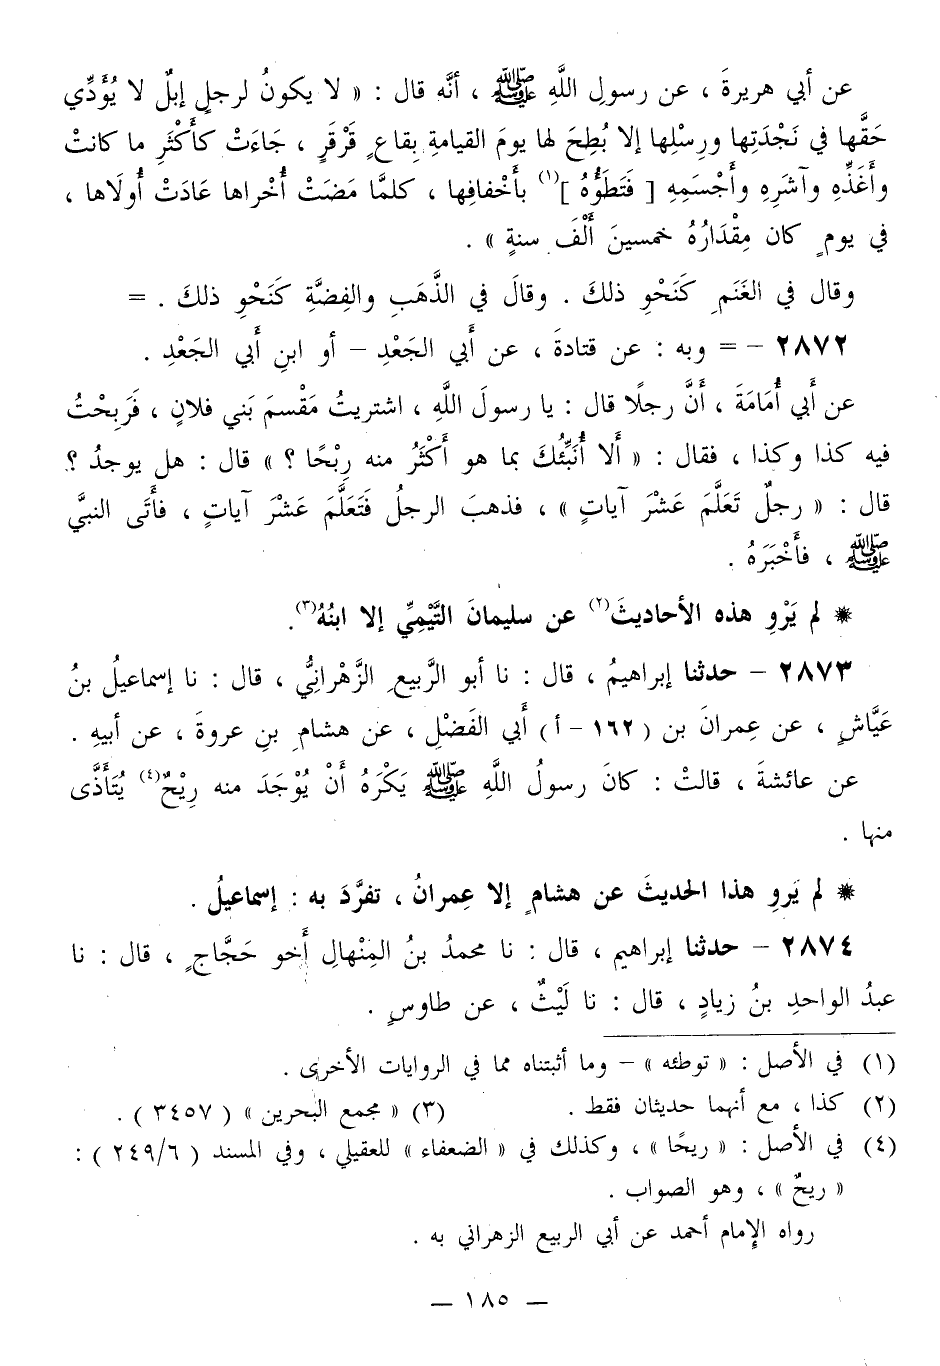 عن أبي هريرةَ ، عن رسولِ اللَّهِ ﷺ ، أنَّه قال : « لا يكونُ لرجلٍ إبلٌ لا يُؤَدِّي
حَقَّها في نَجْدَتِها ورِسْلِها إلا بُطِحَ لها يومَ القيامةِ بِقاعٍ قَرْقَرٍ ، جَاءَتْ كأَكْثَرِ ما كانتْ
وأَغَذِّهِ وآشَرِهِ وأَجْسَمِهِ [ فَتَطَؤُهُ ](١) بأَخْفافِها ، كلمَّا مَضَتْ أُخْراها عَادَتْ أُولَاها ،
في يومٍ كان مِقْدَارُهُ خمسينَ أَلْفَ سنةٍ » .
وقال في الغَنَمِ كَنَحْوِ ذلكَ . وقالَ في الذَّهَبِ والفِضَّةِ كَنَحْوِ ذلكَ . =
٢٨٧٢ – = وبه : عن قتادةَ ، عن أَبي الجَعْدِ – أو ابنِ أَبي الجَعْدِ .
عن أَبي أُمَامَةَ ، أَنَّ رجلًا قال : يا رسولَ اللَّهِ ، اشتريتُ مَقْسمَ بَني فلانٍ ، فَرَبِحْتُ
فيه كذا وكذا ، فقال : « أَلا أُنَبِّئُكَ بما هو أَكْثَرُ منه رِبْحًا ؟ » قال : هل يوجدُ ؟
قال : « رجلٌ تَعَلَّمَ عَشْرَ آياتٍ » ، فذهبَ الرجلُ فَتَعَلَّمَ عَشْرَ آياتٍ ، فأَتَى النبيَّ
ﷺ ، فأَخْبَرَهُ .
* لم يَرْوِ هذه الأحاديثَ(٢) عن سليمانَ التَّيْمِيِّ إلا ابنُهُ(٣).
٢٨٧٣ – حدثنا إبراهيمُ ، قال : نا أبو الرَّبيعِ الزَّهْرانِيُّ ، قال : نا إسماعيلُ بنُ
عَيَّاشٍ ، عن عِمرانَ بن ( ١٦٢ – أ ) أَبي الفَضْلِ ، عن هشامِ بنِ عروةَ ، عن أبيهِ .
عن عائشةَ ، قالتْ : كانَ رسولُ اللَّهِ ﷺ يَكْرَهُ أَنْ يُوْجَدَ منه رِيْحٌ(٤) يُتَأَذَّى
منها .
* لم يَروِ هذا الحديثَ عن هشامٍ إلا عِمرانُ ، تفرَّدَ به : إسماعيلُ .
٢٨٧٤ – حدثنا إبراهيم ، قال : نا محمدُ بنُ المِنْهالِ أَخو حَجَّاجٍ ، قال : نا
عبدُ الواحدِ بنُ زيادٍ ، قال : نا لَيْثٌ ، عن طاوسٍ .
(١) في الأصل : « توطئه » – وما أثبتناه مما في الروايات الأخرى .
(٢) كذا ، مع أنهما حديثان فقط . (٣) « مجمع البحرين » ( ٣٤٥٧ ) .
(٤) في الأصل : « ريحًا » ، وكذلك في « الضعفاء » للعقيلي ، وفي المسند ( ٢٤٩/٦ ) :
« ريحٌ » ، وهو الصواب .
رواه الإمام أحمد عن أبي الربيع الزهراني به .
– ١٨٥ –